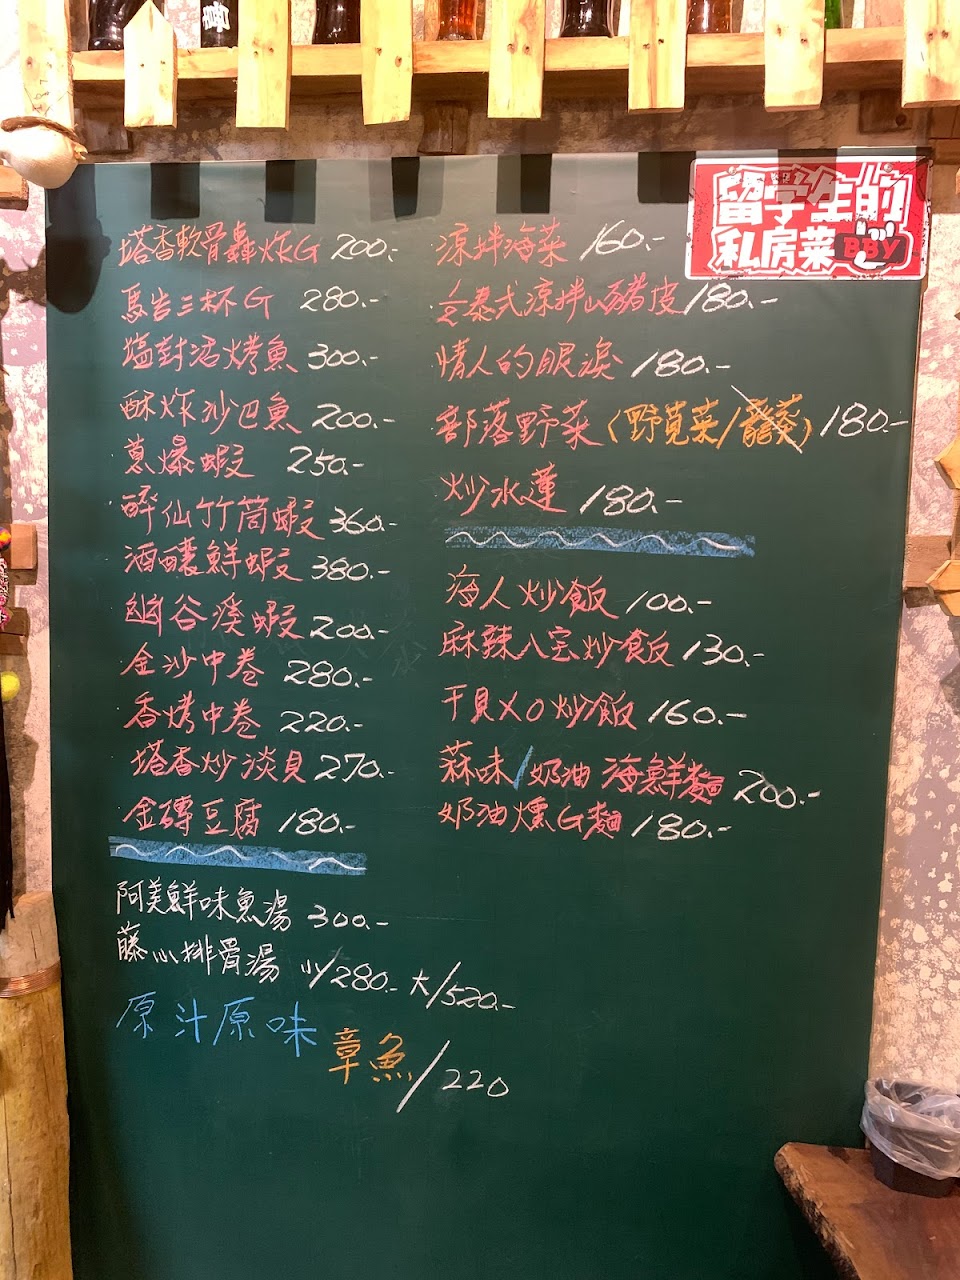 留学生的
私房菜 BBY
塔香軟骨轟炸G 200.-
馬告三杯G 280.-
塩封沼烤魚 300.-
酥炸沙巴魚 200.-
蔥爆蝦 250.-
醉仙竹筒蝦 360.-
酒釀鮮蝦 380.-
幽谷溪蝦 200.-
金沙中卷 280.-
香烤中卷 220.-
塔香炒淡貝 270.-
金磚豆腐 180.-
阿美鮮味魚湯 300.-
藤心排骨湯 小/280.- 大/520.-
原汁原味 章魚/220
涼拌海菜 160.-
泰式涼拌山豬皮 180.-
情人的眼淚 180.-
部落野菜(野莧菜/龍葵) 180.-
炒水蓮 180.-
海人炒飯 100.-
麻辣八宝炒飯 130.-
干貝XO炒飯 160.-
蒜味/奶油 海鮮麵 200.-
奶油燻G麵 180.-